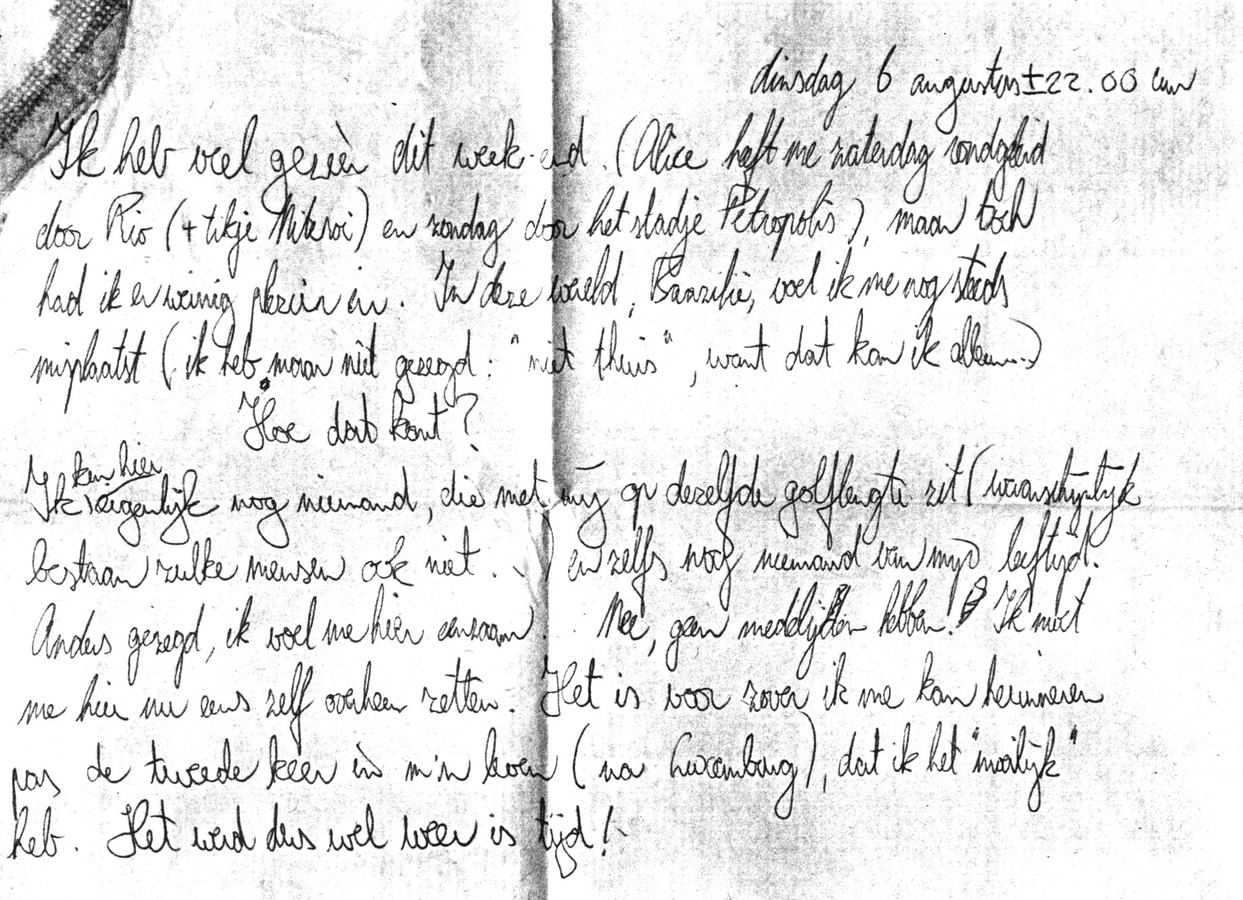 dinsdag 6 augustus ± 22.00 uur
Ik heb veel gezien dit week-end. (Alice heeft me zaterdag rondgeleid
door Rio (+ tikje Niteroi) en zondag door het stadje Petropolis), maar toch
had ik er weinig plezier in. In deze wereld, Brazilië, voel ik me nog steeds
misplaatst (ik heb maar niet gezegd: "niet thuis", want dat kan ik alleen...)
Hoe dat komt?
Ik ken hier eigenlijk nog niemand, die met mij op dezelfde golflengte zit (waarschijnlijk
bestaan zulke mensen ook niet...) en zelfs nog niemand van mijn leeftijd.
Anders gezegd, ik voel me hier eenzaam. Nee, geen medelijden hebben! Ik moet
me hier nu eens zelf overheen zetten. Het is voor zover ik me kan herinneren
pas de tweede keer in m'n leven (na Luxemburg), dat ik het "moeilijk"
heb. Het werd dus wel weer is tijd!